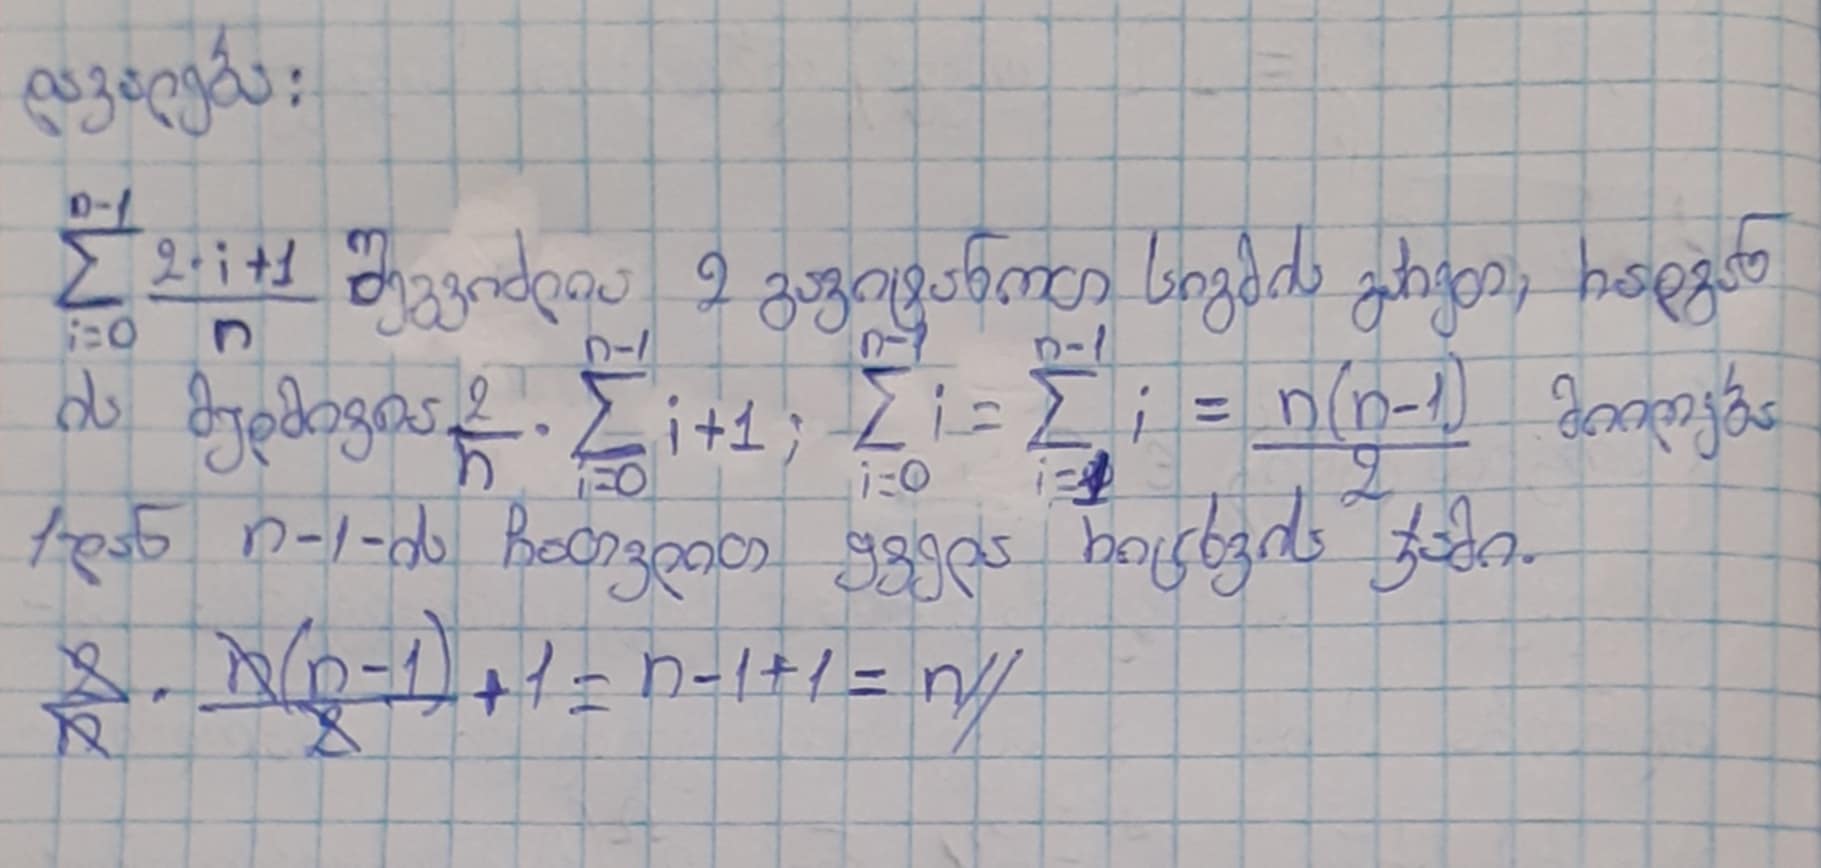 დავალება:
$\sum_{i=0}^{n-1} \frac{2 \cdot i+1}{n}$ შეგვიძლია 2 გავიტანოთ სიგმის გარეთ, რადგან
ის მუდმივია $\frac{2}{n} \cdot \sum_{i=0}^{n-1} i+1$; $\sum_{i=0}^{n-1} i = \sum_{i=1}^{n-1} i = \frac{n(n-1)}{2}$ მიიღება
1-დან n-1-ის ჩათვლით ყველა რიცხვის ჯამი.
$\frac{2}{n} \cdot \frac{n(n-1)}{2} + 1 = n-1+1 = n$//